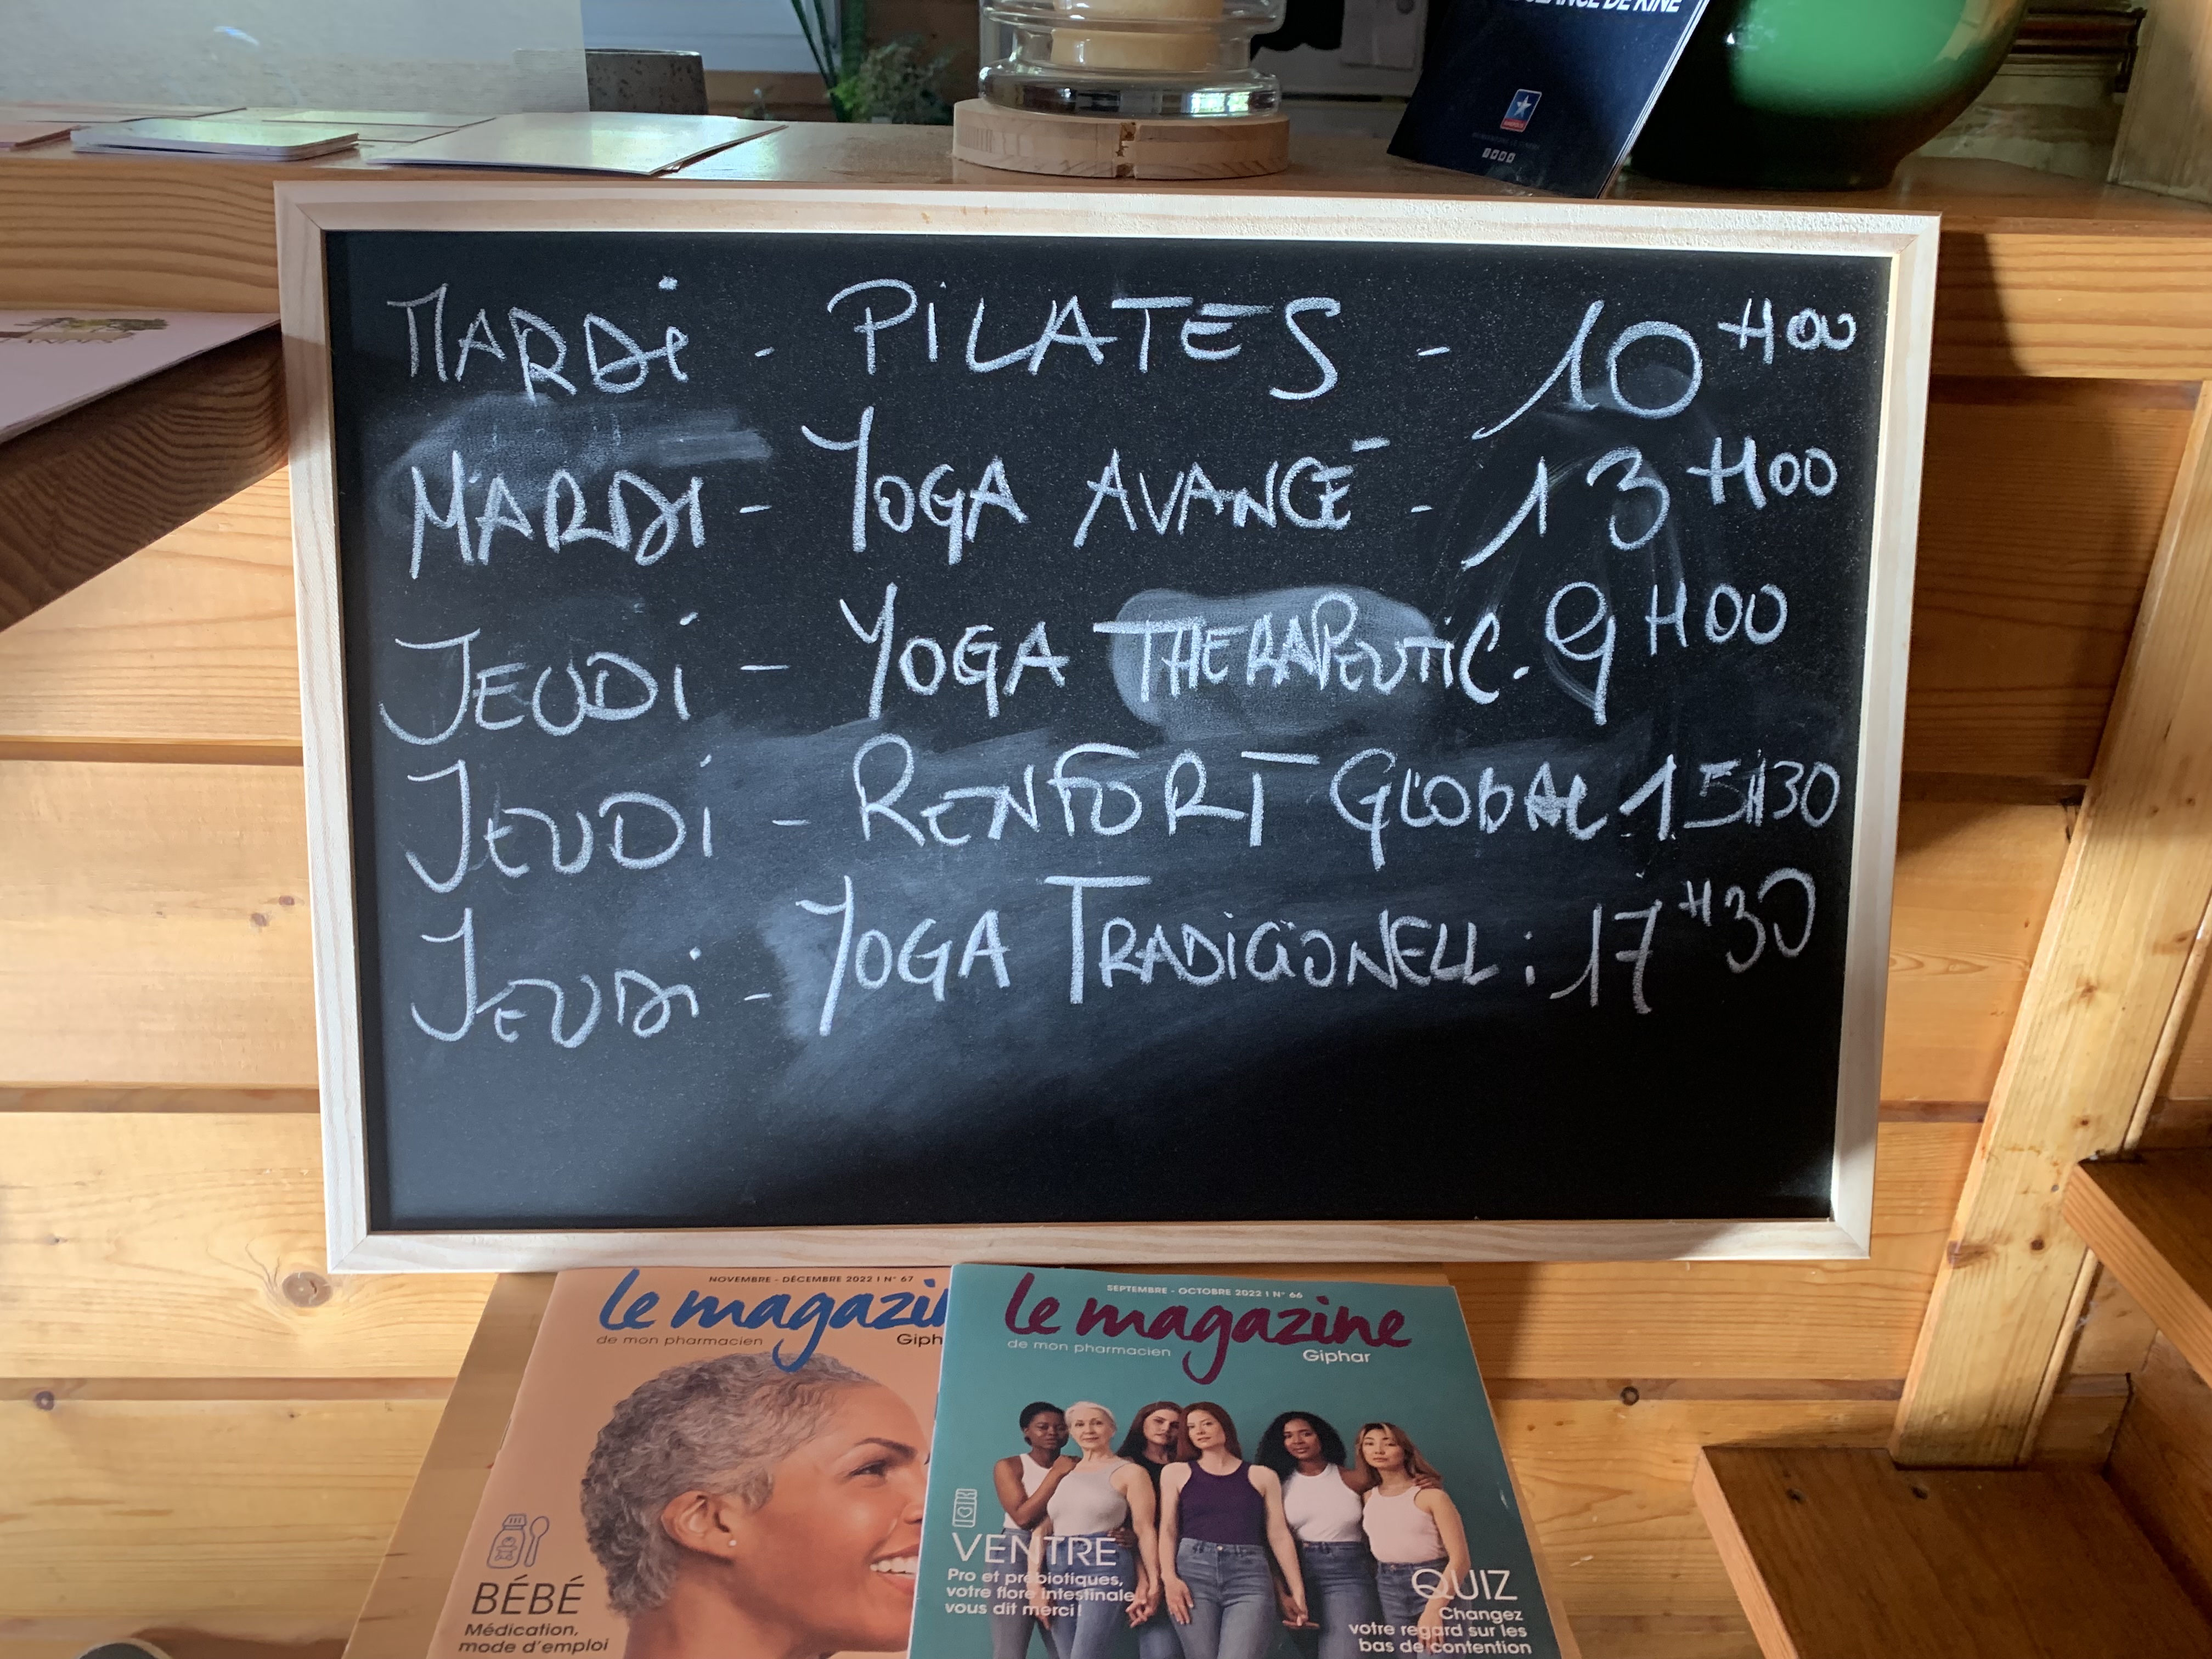 SÉANCE DE KINÉ
MARDi - PiLATES - 10H00
MARDI - YOGA AVANCÉ - 13H00
JEUDi - YOGA THERAPEUTiC. 9H00
JEUDi - RENFORT GLOBAL 15H30
JEUDi - YOGA TRADiCiONELL : 17H30
NOVEMBRE - DÉCEMBRE 2022 | N° 67
le magazin
de mon pharmacien
Giph
BÉBÉ
Médication,
mode d'emploi
SEPTEMBRE - OCTOBRE 2022 | N° 66
le magazine
de mon pharmacien
Giphar
VENTRE
Pro et prébiotiques,
votre flore intestinale
vous dit merci !
QUIZ
Changez
votre regard sur les
bas de contention